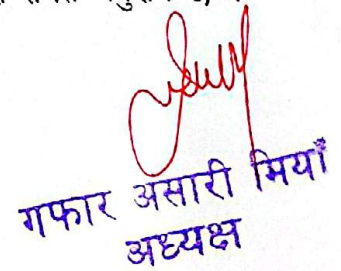 गफार असारी मियाँ
अध्यक्ष